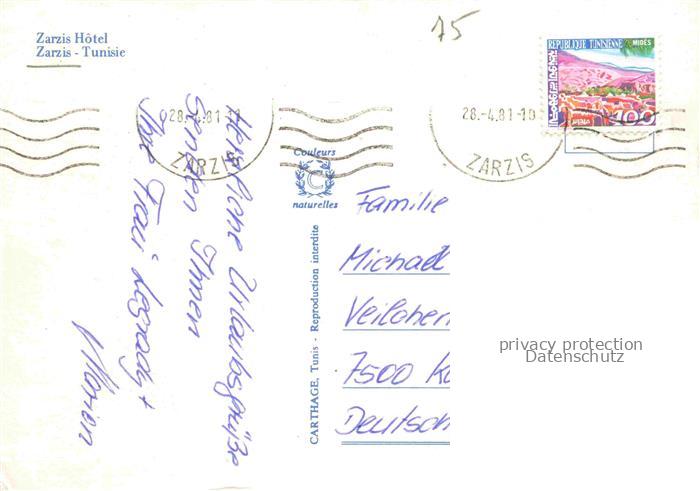 Zarzis Hôtel
Zarzis - Tunisie
75
28.-4.81-1
ZARZIS
28.-4.81-10
ZARZIS
REPUBLIQUE TUNISIENNE
MIDES
100
Couleurs
C
naturelles
CARTHAGE, Tunis - Reproduction interdite
Herzliche Urlaubsgrüße
senden Ihnen
Ihre Frau
+
Familie
Michael
Veilchen
7500 K
Deutsch
privacy protection
Datenschutz